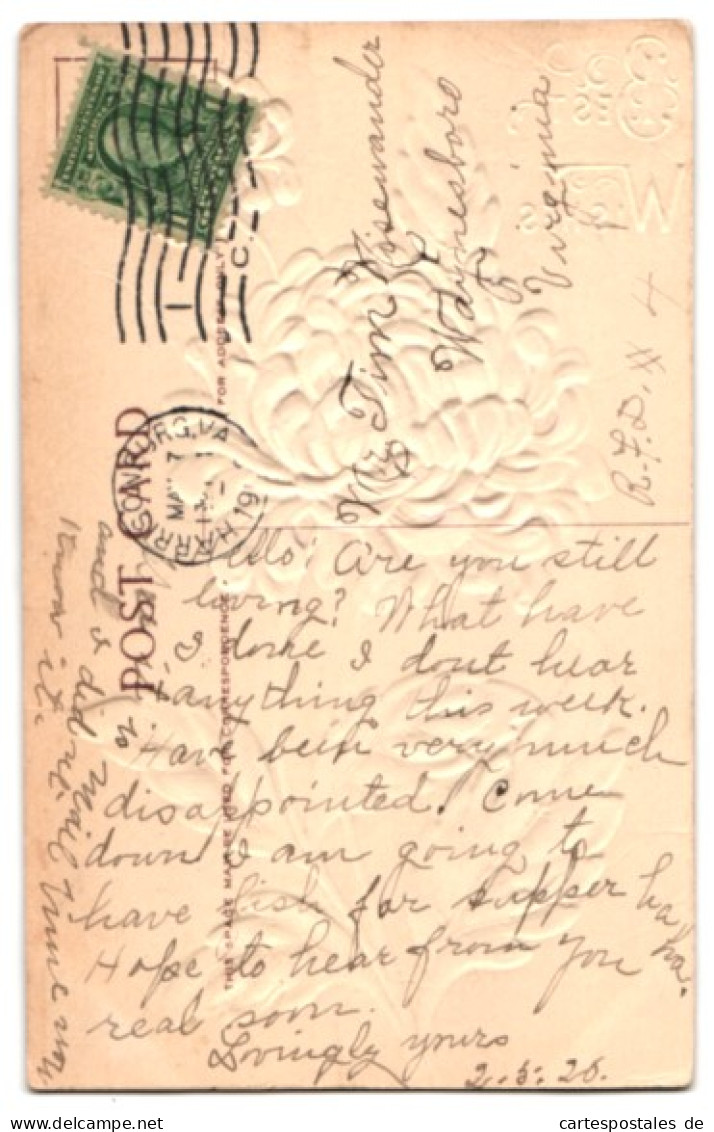 POST CARD
THIS SPACE MAY BE USED FOR CORRESPONDENCE.
FOR ADDRESS ONLY
HARRISONBURG, VA
Mr Tim
Waynesboro
Virginia
R.F.D. # 4
Hello! Are you still
loving? What have
I done I dont hear
anything this week.
Have been very much
disappointed. Come
down I am going to
have fish for supper ha ha.
Hope to hear from you
real soon.
Lovingly yours
2. 5. 25.
and I did
know it.
cartespostales de